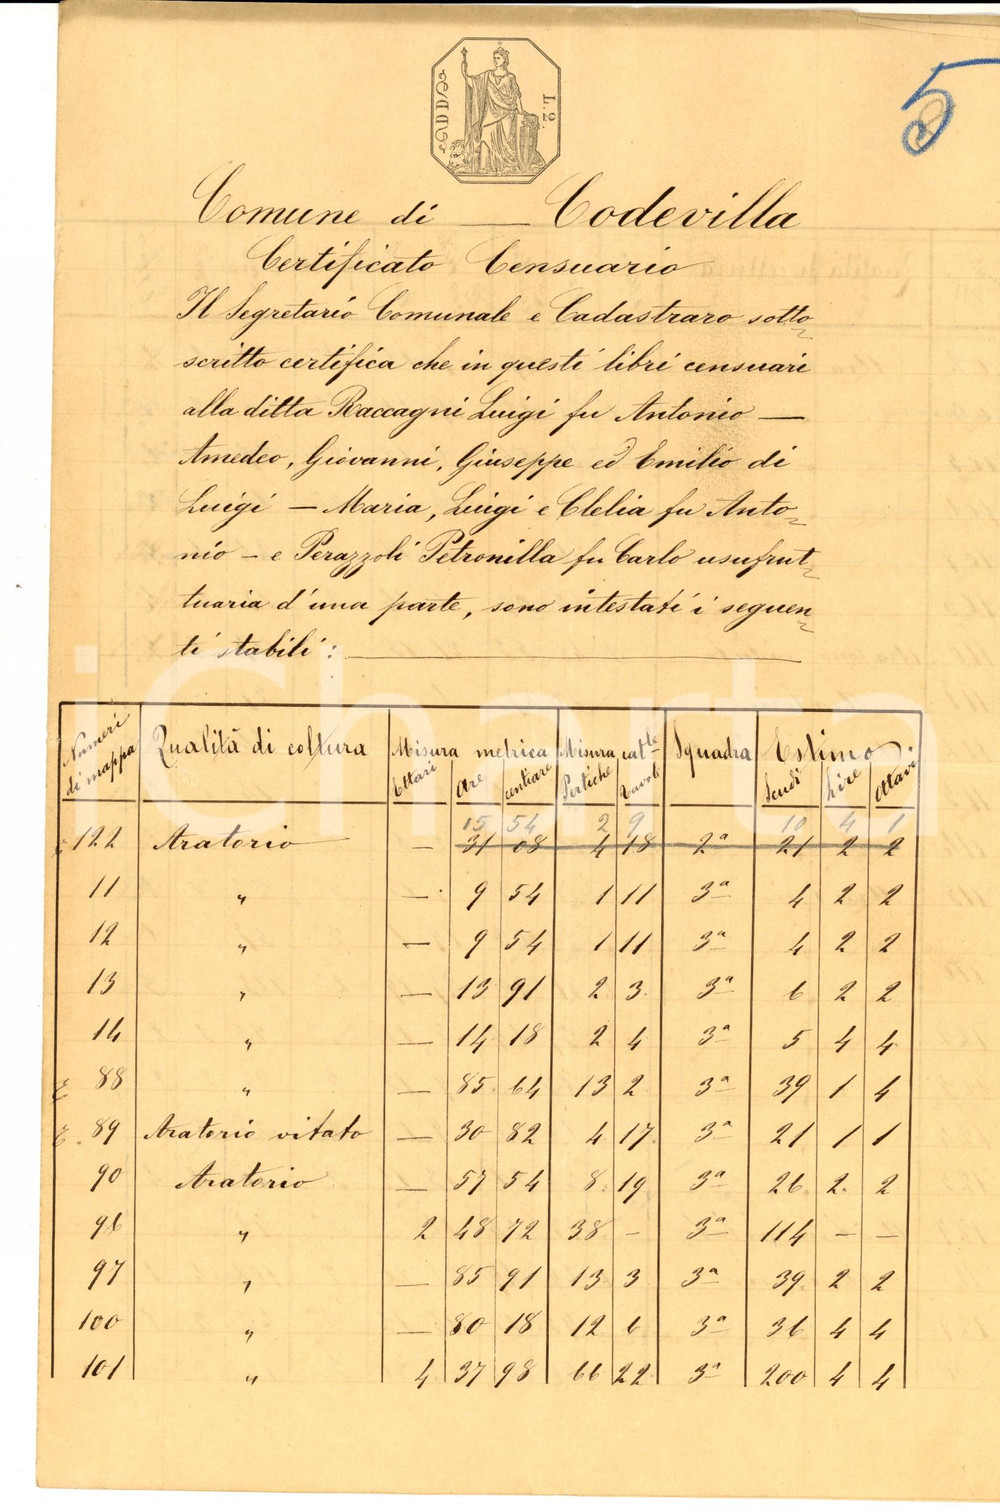 L. 2.
5
Comune di — Codevilla
Certificato Censuario
Il Segretario Comunale e Cadastraro sotto-
scritto certifica che in questi libri censuari
alla ditta Raccagni Luigi fu Antonio —
Amedeo, Giovanni, Giuseppe ed Emilio di
Luigi — Maria, Luigi e Clelia fu Anto-
nio — e Perazzoli Petronilla fu Carlo usufrut-
tuaria d'una parte, sono intestati i seguen-
ti stabili:
iCharta
Numeri di mappa | Qualità di coltura | Misura metrica | Misura catle | Squadra | Estimo
Ettari | Are | Centiare | Pertiche | Tavole | Scudi | Lire | Ottavi
15 54 2 9 10 4 1
122 Aratorio — 31 08 4 18 2a 21 2 2
11 " — 9 54 1 11 3a 4 2 2
12 " — 9 54 1 11 3a 4 2 2
13 " — 13 91 2 3 3a 6 2 2
14 " — 14 18 2 4 3a 5 4 4
88 " — 85 64 13 2 3a 39 1 4
89 Aratorio vitato — 30 82 4 17 3a 21 1 1
90 Aratorio — 57 54 8 19 3a 26 2 2
96 " 2 48 72 38 — 3a 114 — —
97 " — 85 91 13 3 3a 39 2 2
100 " — 80 18 12 6 3a 36 4 4
101 " 4 37 98 66 22 3a 200 4 4